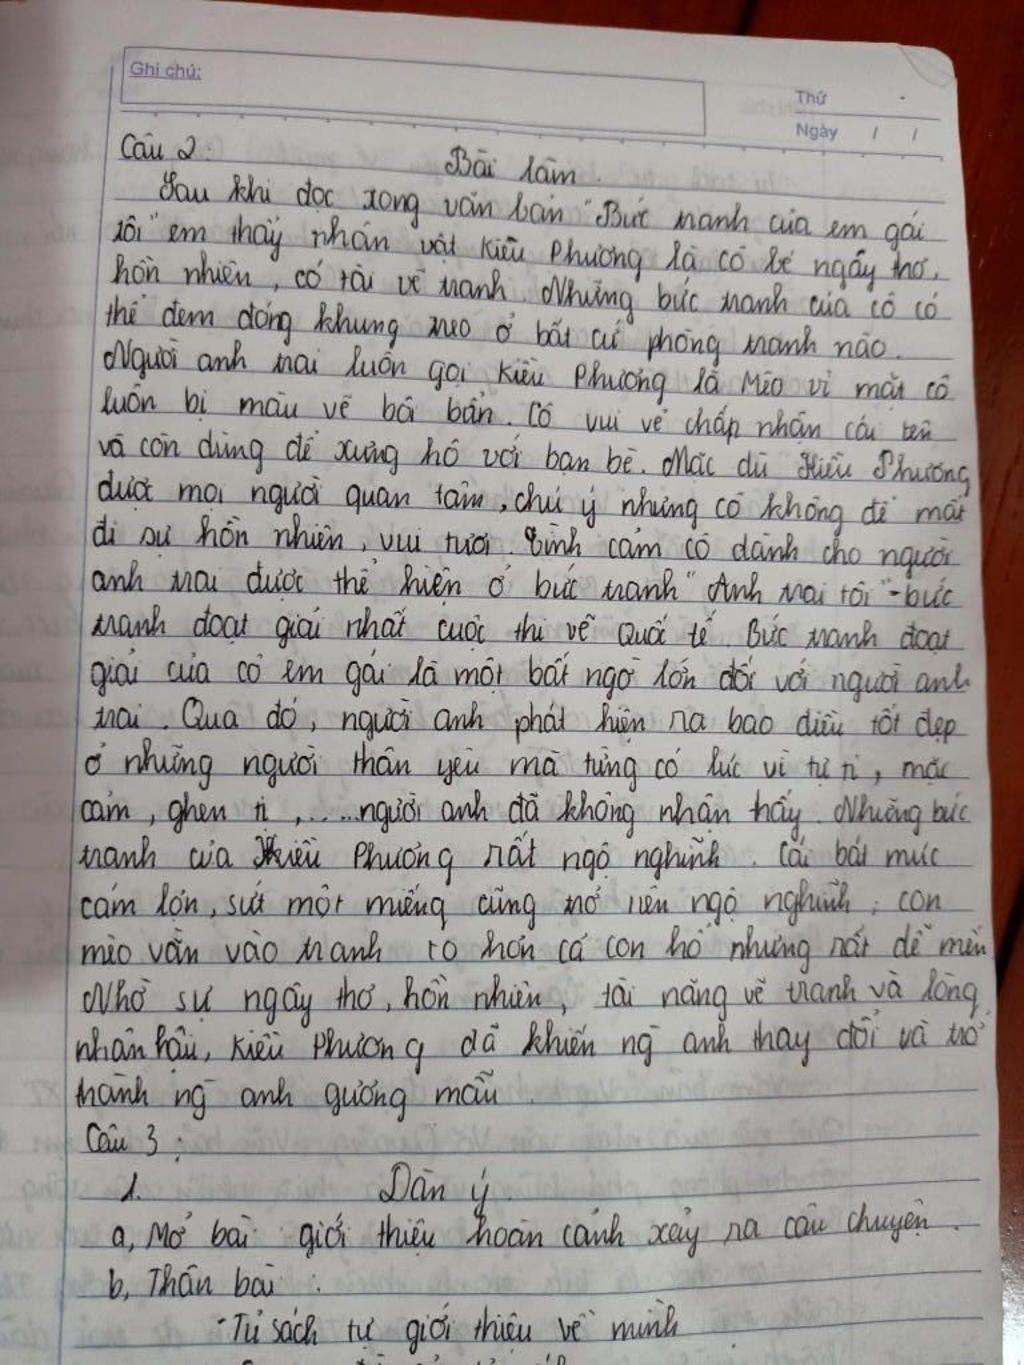 Ghi chú:
Thứ
Ngày / /
Câu 2:
Bài làm.
Sau khi đọc xong văn bản "Bức tranh của em gái
tôi" em thấy nhân vật Kiều Phương là cô bé ngây thơ,
hồn nhiên, có tài vẽ tranh. Những bức tranh của cô có
thể đem đóng khung treo ở bất cứ phòng tranh nào.
Người anh trai luôn gọi Kiều Phương là Mèo vì mặt cô
luôn bị màu vẽ bôi bẩn. Cô vui vẻ chấp nhận cái tên
và còn dùng để xưng hô với bạn bè. Mặc dù Kiều Phương
được mọi người quan tâm, chú ý nhưng cô không để mất
đi sự hồn nhiên, vui tươi. Tình cảm cô dành cho người
anh trai được thể hiện ở bức tranh "Anh trai tôi" - bức
tranh đoạt giải nhất cuộc thi vẽ Quốc tế. Bức tranh đoạt
giải của cô em gái là một bất ngờ lớn đối với người anh
trai. Qua đó, người anh phát hiện ra bao điều tốt đẹp
ở những người thân yêu mà từng có lúc vì tự ti, mặc
cảm, ghen tị, .....người anh đã không nhận thấy. Những bức
tranh của Kiều Phương rất ngộ nghĩnh. Cái bát múc
cám lợn, sứt một miếng cũng trở nên ngộ nghĩnh; con
mèo vằn vào tranh to hơn cả con hổ nhưng rất dễ mến
Nhờ sự ngây thơ, hồn nhiên, tài năng vẽ tranh và lòng
nhân hậu, Kiều Phương đã khiến ng anh thay đổi và trở
thành ng anh gương mẫu.
Câu 3:
1. Dàn ý
a, Mở bài: giới thiệu hoàn cảnh xảy ra câu chuyện.
b, Thân bài:
-Tủ sách tự giới thiệu về mình